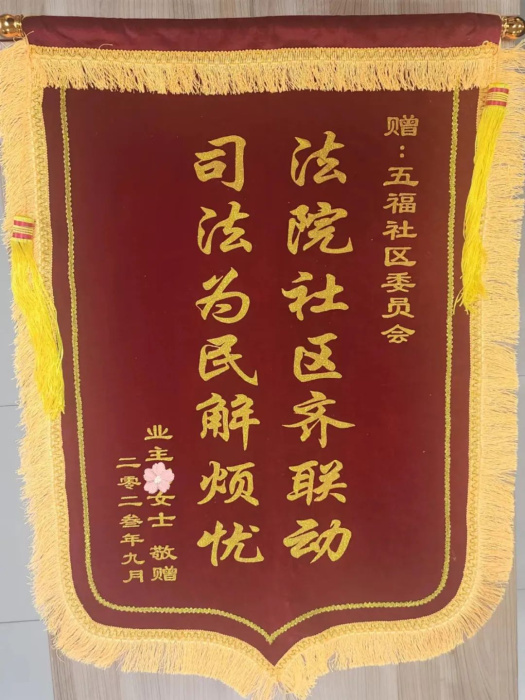 赠：五福社区委员会
法院社区齐联动
司法为民解烦忧
业主女士 敬赠
二零二叁年九月